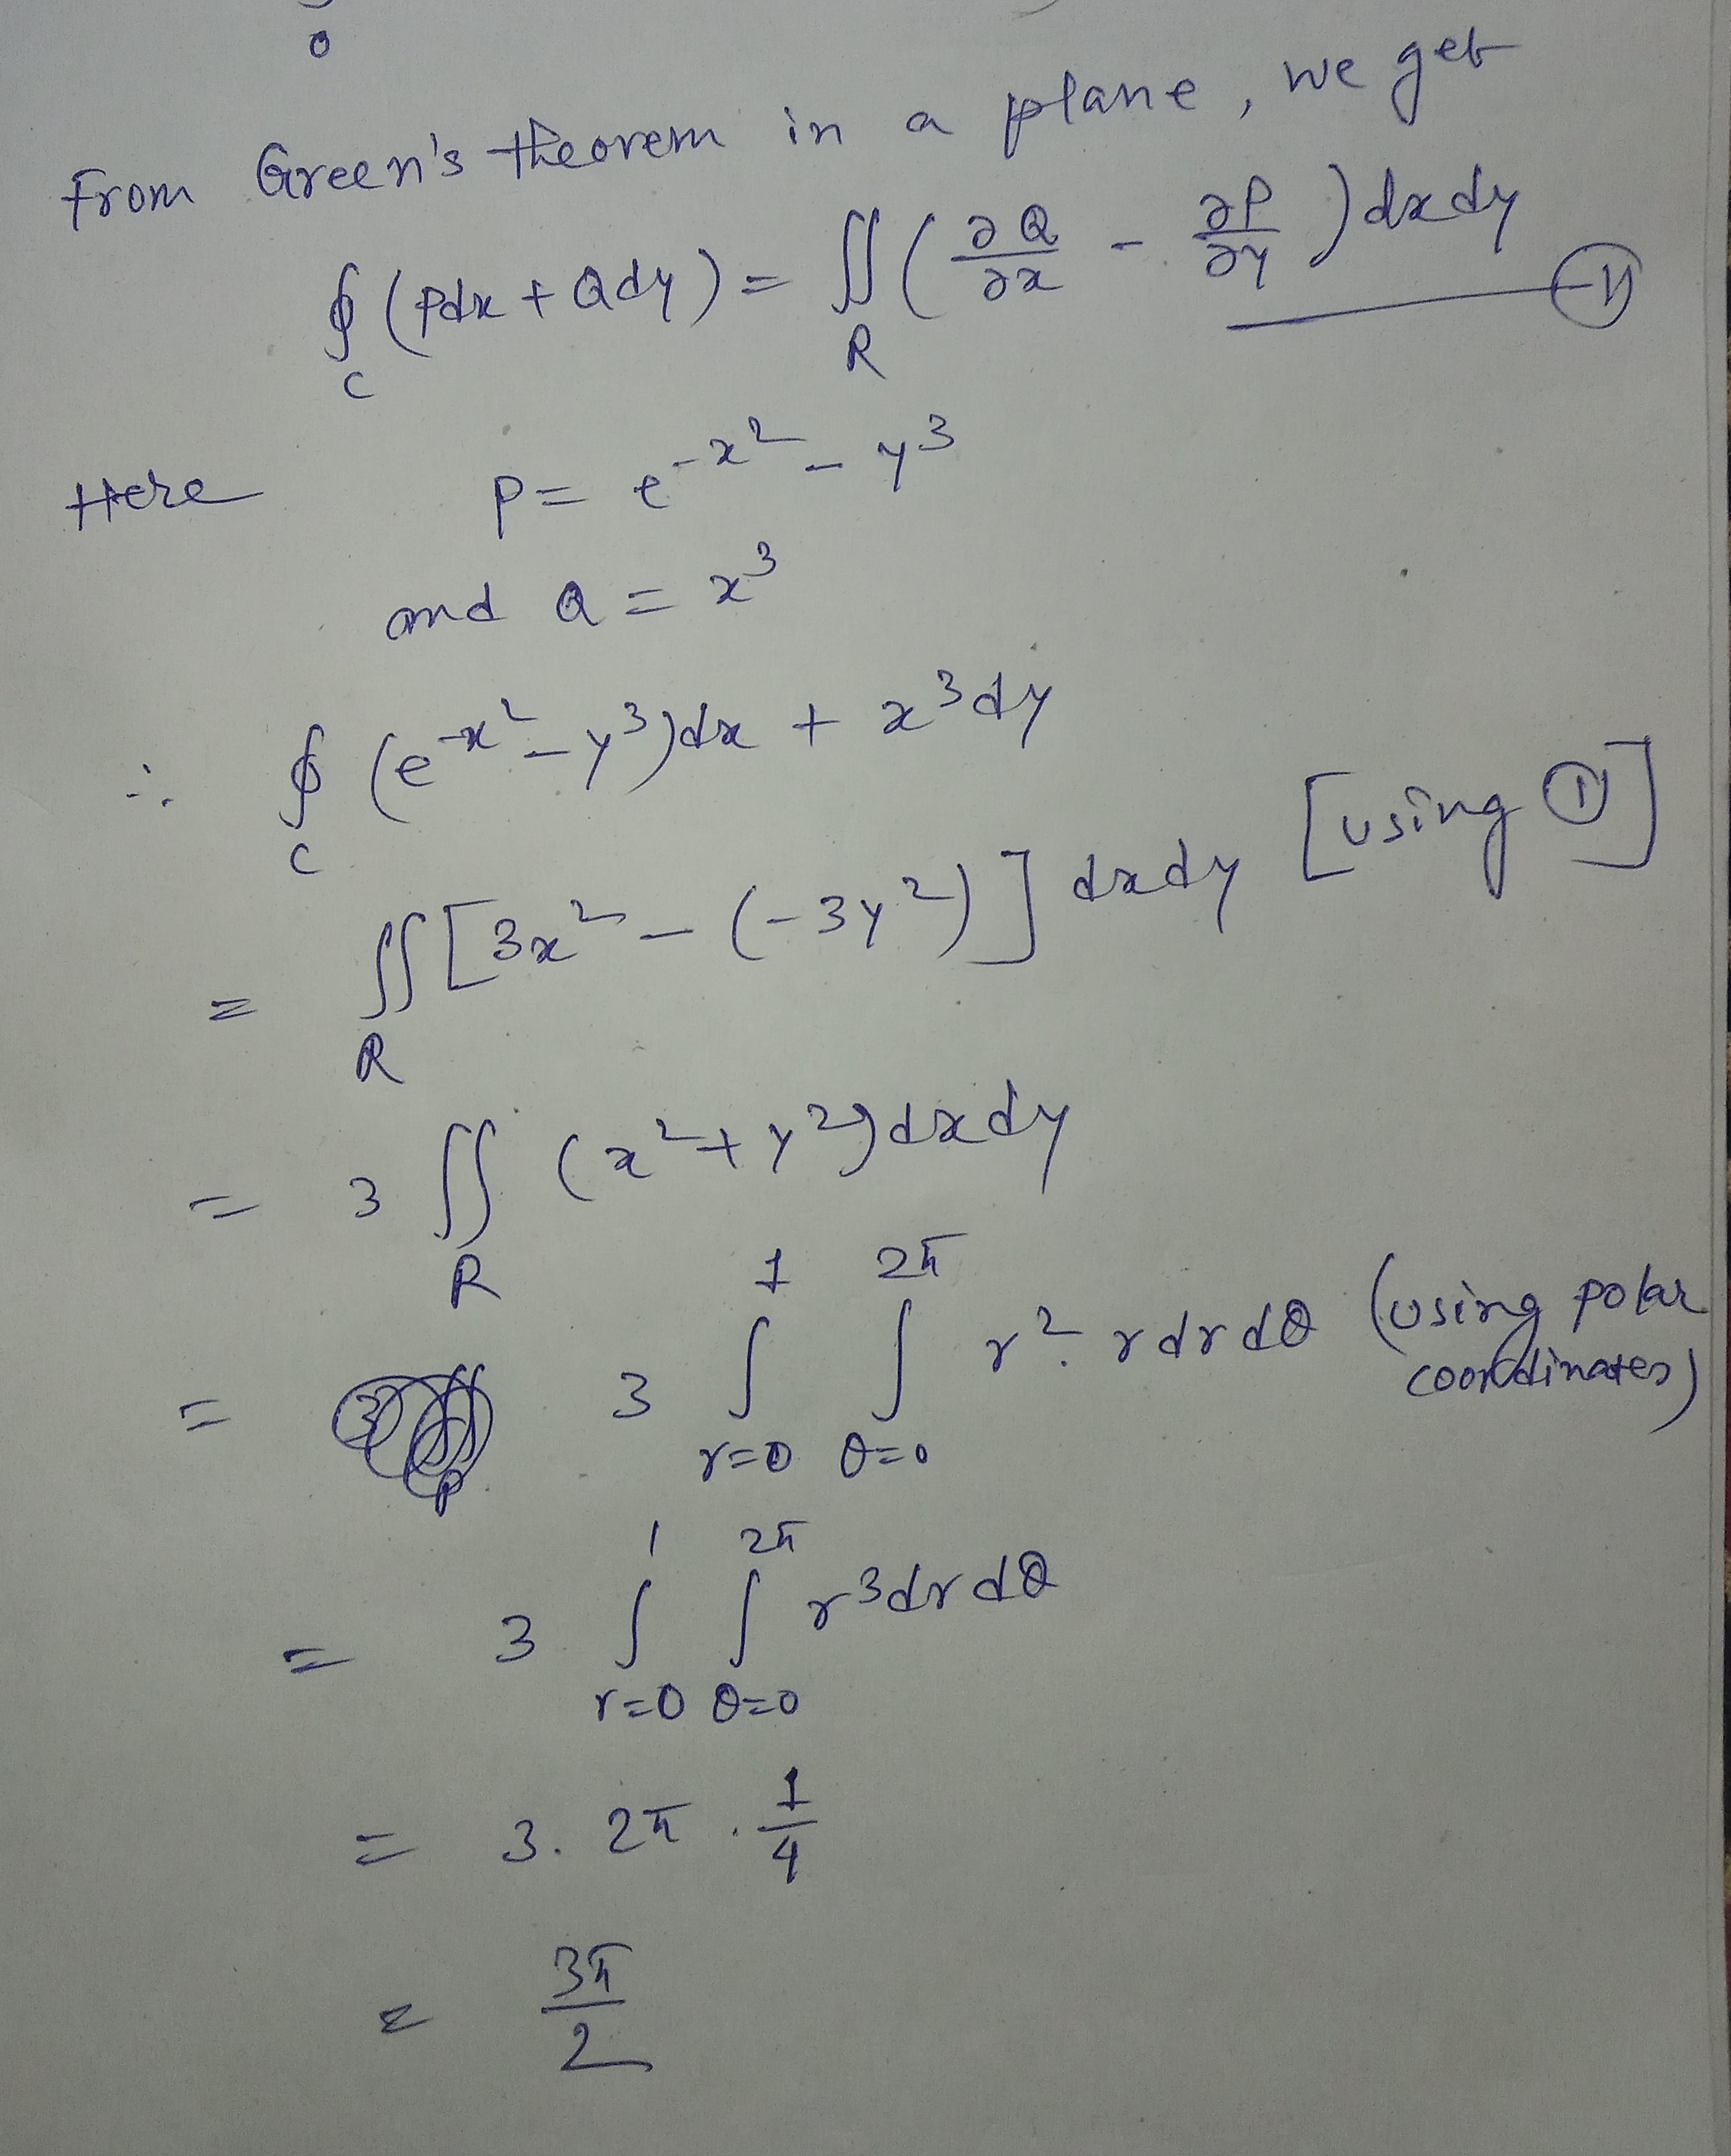 0
From Green's theorem in a plane, we get
∮_C (Pdx + Qdy) = ∬_R (∂Q/∂x - ∂P/∂y) dxdy —— (1)
Here P = e^{-x^2} - y^3
and Q = x^3
∴ ∮_C (e^{-x^2} - y^3)dx + x^3dy
= ∬_R [3x^2 - (-3y^2)] dxdy [using (1)]
= 3 ∬_R (x^2+y^2)dxdy
= 3 ∫_{r=0}^{1} ∫_{θ=0}^{2π} r^2. rdrdθ (using polar coordinates)
= 3 ∫_{r=0}^{1} ∫_{θ=0}^{2π} r^3drdθ
= 3. 2π . 1/4
= 3π/2